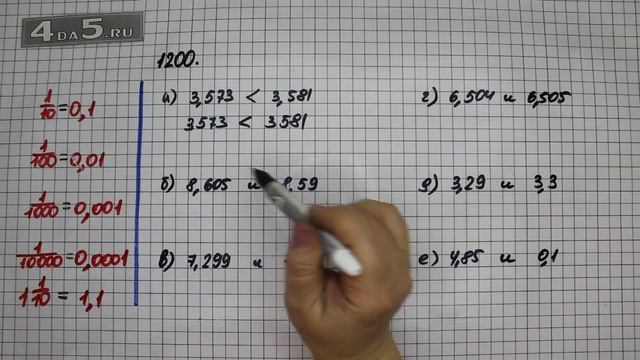 4 ДА 5.RU
1200.
1/10 = 0,1
1/100 = 0,01
1/1000 = 0,001
1/10000 = 0,0001
1 1/10 = 1,1
а) 3,573 < 3,581
3573 < 3581
б) 8,605 и 8,59
в) 7,299 и
г) 6,504 и 6,505
д) 3,29 и 3,3
е) 4,85 и 0,1